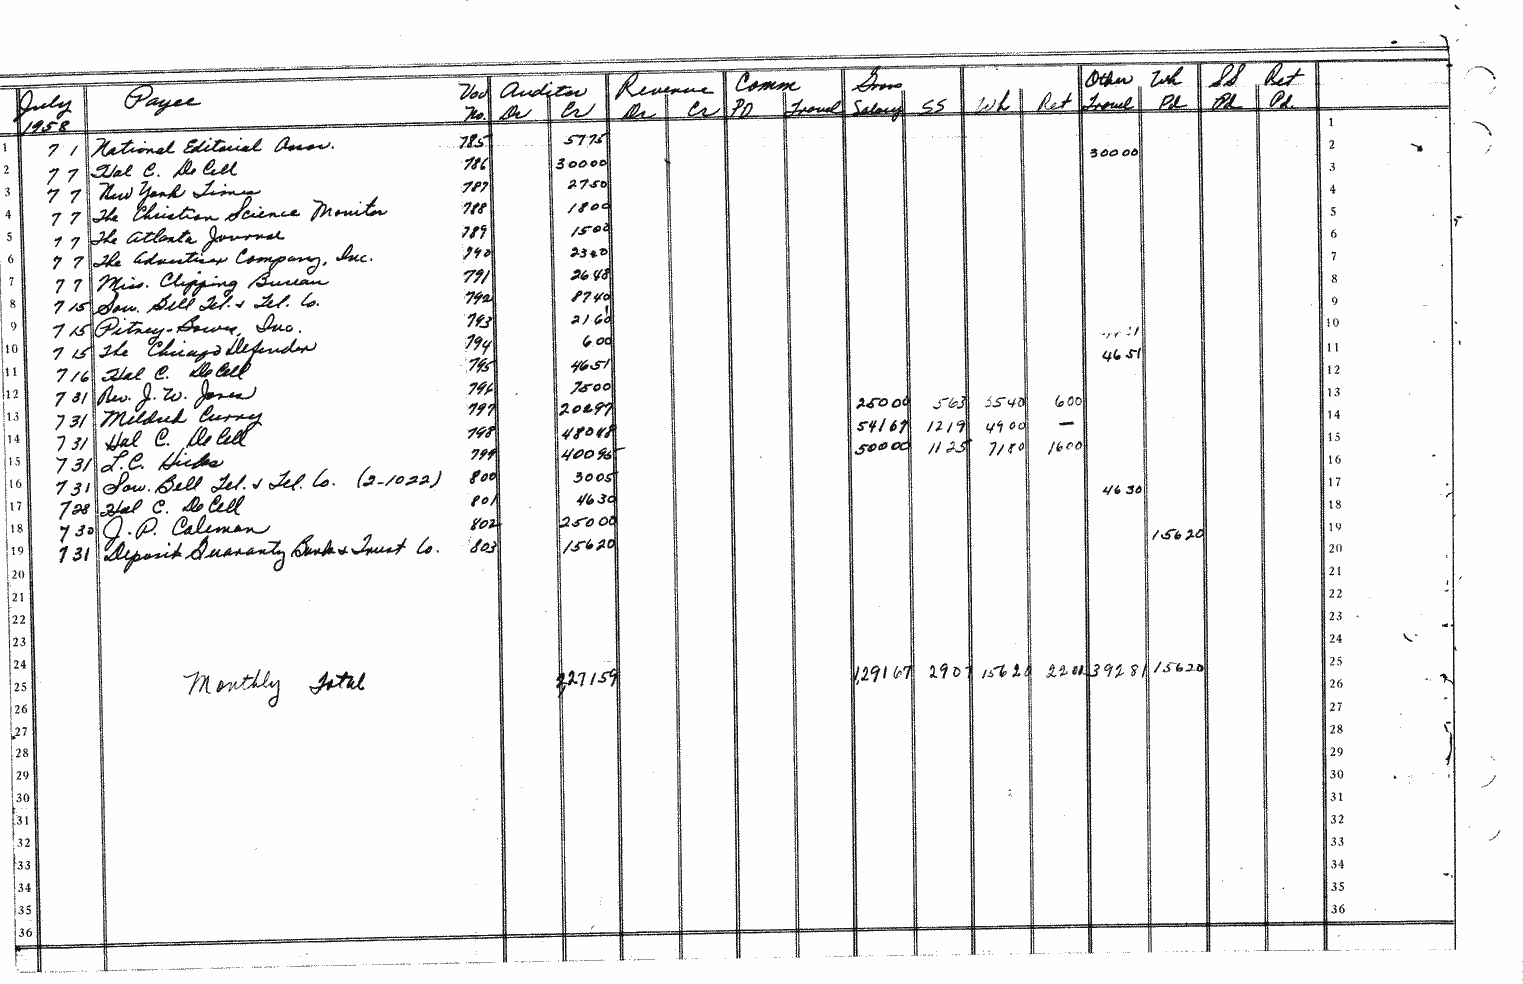 July 1958 Payee Vou No. Auditor Dr Cr Revenue Dr Cr Comm PD Travel Gross Salary SS Wh Ret Other Travel Wh Pd SS Pd Ret Pd.
1 7 1 National Editorial Assn. 785 5775 1
2 7 7 Hal C. DeCell 786 30000 30000 2
3 7 7 New York Times 787 2750 3
4 7 7 The Christian Science Monitor 788 1800 4
5 7 7 The Atlanta Journal 789 1500 5
6 7 7 The Advertiser Company, Inc. 790 6
7 7 7 Miss. Clipping Bureau 791 2648 7
8 7 15 Sou. Bell Tel. & Tel. Co. 792 8740 8
9 7 15 Pitney-Bowes, Inc. 793 2160 9
10 7 15 The Chicago Defender 794 600 10
11 7 16 Hal C. DeCell 795 4651 4651 11
12 7 31 Rev. J. W. Jones 796 7500 12
13 7 31 Mildred Curry 797 20297 25000 563 3540 600 13
14 7 31 Hal C. DeCell 798 48048 54167 1219 4900 — 14
15 7 31 L.C. Hicks 799 40095 50000 1125 7180 1600 15
16 7 31 Sou. Bell Tel. & Tel. Co. (2-1022) 800 3005 16
17 7 28 Hal C. DeCell 801 4630 4630 17
18 7 30 J. P. Coleman 802 25000 18
19 7 31 Deposit Guaranty Bank & Trust Co. 803 15620 15620 19
20 20
21 21
22 22
23 23
24 24
25 Monthly Total 2,27159 1,29167 2907 15620 2200 39281 15620 25
26 26
27 27
28 28
29 29
30 30
31 31
32 32
33 33
34 34
35 35
36 36